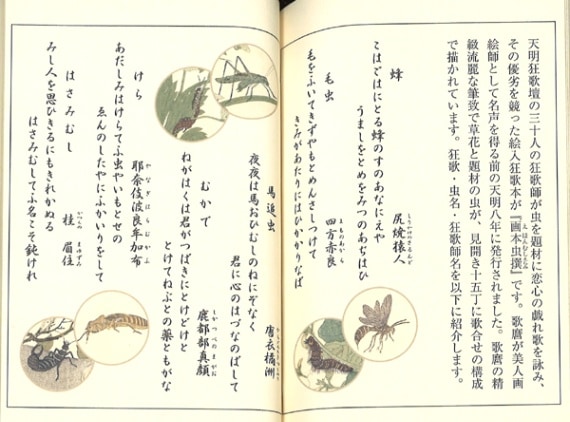 天明狂歌壇の三十人の狂歌師が虫を題材に恋心の戯れ歌を詠み、
その優劣を競った絵入狂歌本が『画本虫撰』です。歌麿が美人画
絵師として名声を得る前の天明八年に発行されました。歌麿の精
緻流麗な筆致で草花と題材の虫が、見開き十五丁に歌合せの構成
で描かれています。狂歌・虫名・狂歌師名を以下に紹介します。
蜂
尻焼猿人
こはごはにとる蜂のすのあなにえや
うましをとめをみつのあぢはひ
毛虫
四方赤良
毛をふいてきずやもとめんさしつけて
きみがあたりにはひかかりなば
馬追虫
唐衣橘洲
夜夜は馬おひむしのねにぞなく
君に心のはづなのばして
むかで
鹿都部真顔
ねがはくは君がつばきにとけどけと
とけてねぶとの薬ともがな
けら
耶奈伎波良牟加布
あだしみはけらてふ虫やいもとせの
ゑんのしたやにふかいりをして
はさみむし
桂 眉住
みし人を思ひきるにもきれかぬる
はさみむしてふ名こそ鈍けれ